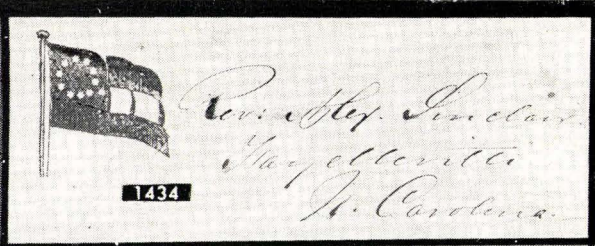 Rev. Alex. Sinclair
Fayetteville
N. Carolina.
1434